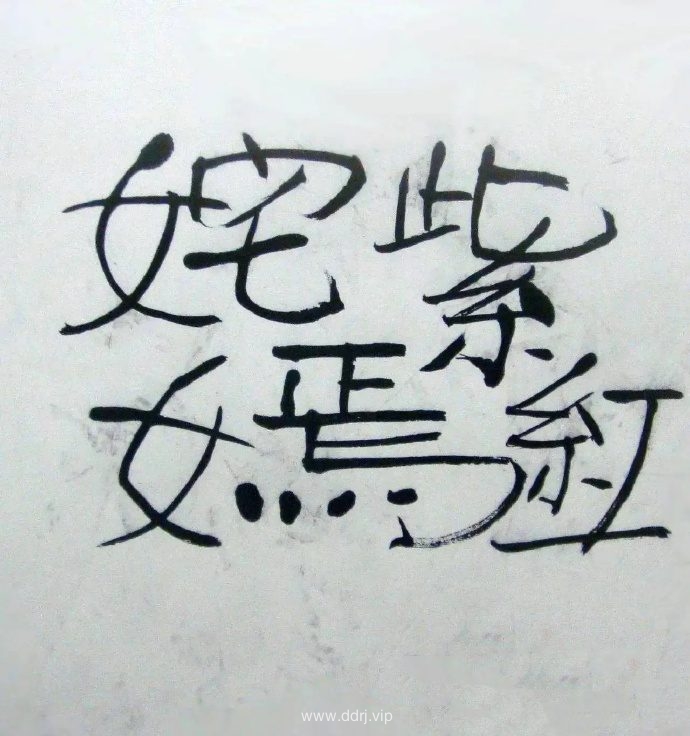 姹紫
嫣紅
www.ddrj.vip